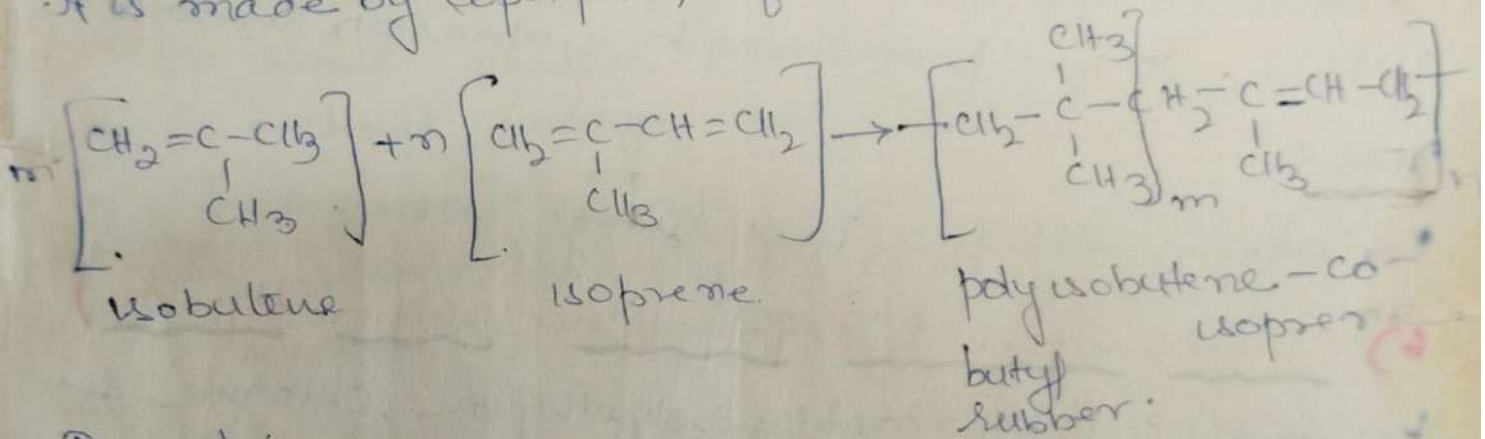 It is made by
CH3
m [CH2=C-CH3] + n [CH2=C-CH=CH2] → [CH2-C-CH2-C=CH-CH2]n
CH3 CH3 CH3]m CH3
isobutene isoprene polyisobutene-co-
isopren
butyl
rubber.